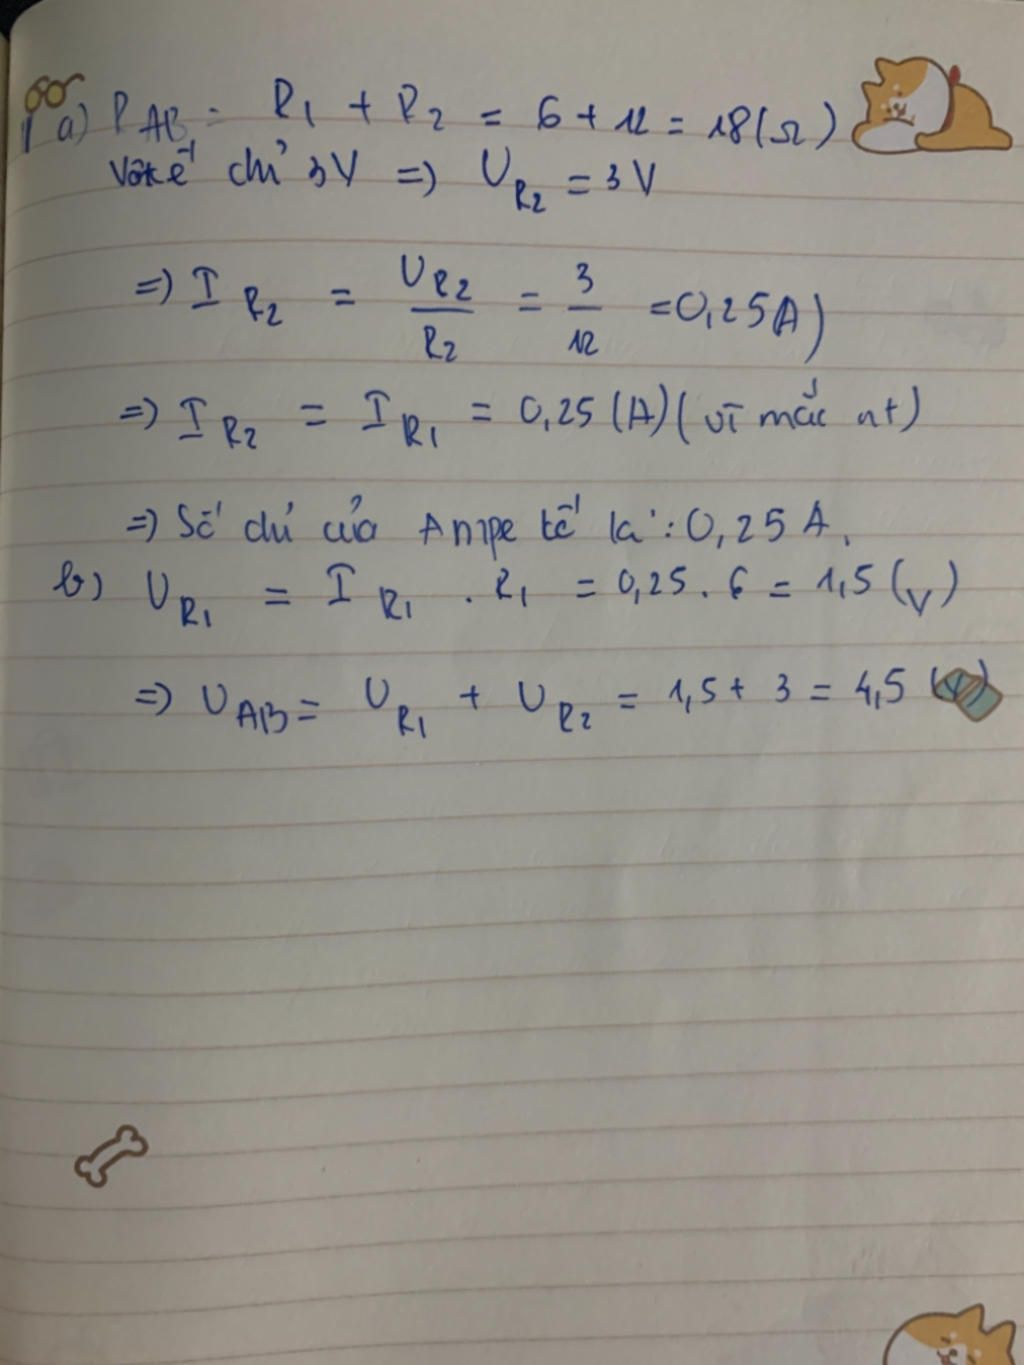 1 a) RAB = R1 + R2 = 6 + 12 = 18(Ω)
Vôn kế chỉ 3V => UR2 = 3V
=> IR2 = UR2/R2 = 3/12 = 0,25A)
=> IR2 = IR1 = 0,25 (A) (vì mắc nt)
=> Số chỉ của Ampe kế là : 0,25 A.
b) UR1 = IR1 . R1 = 0,25 . 6 = 1,5 (V)
=> UAB = UR1 + UR2 = 1,5 + 3 = 4,5 (V)